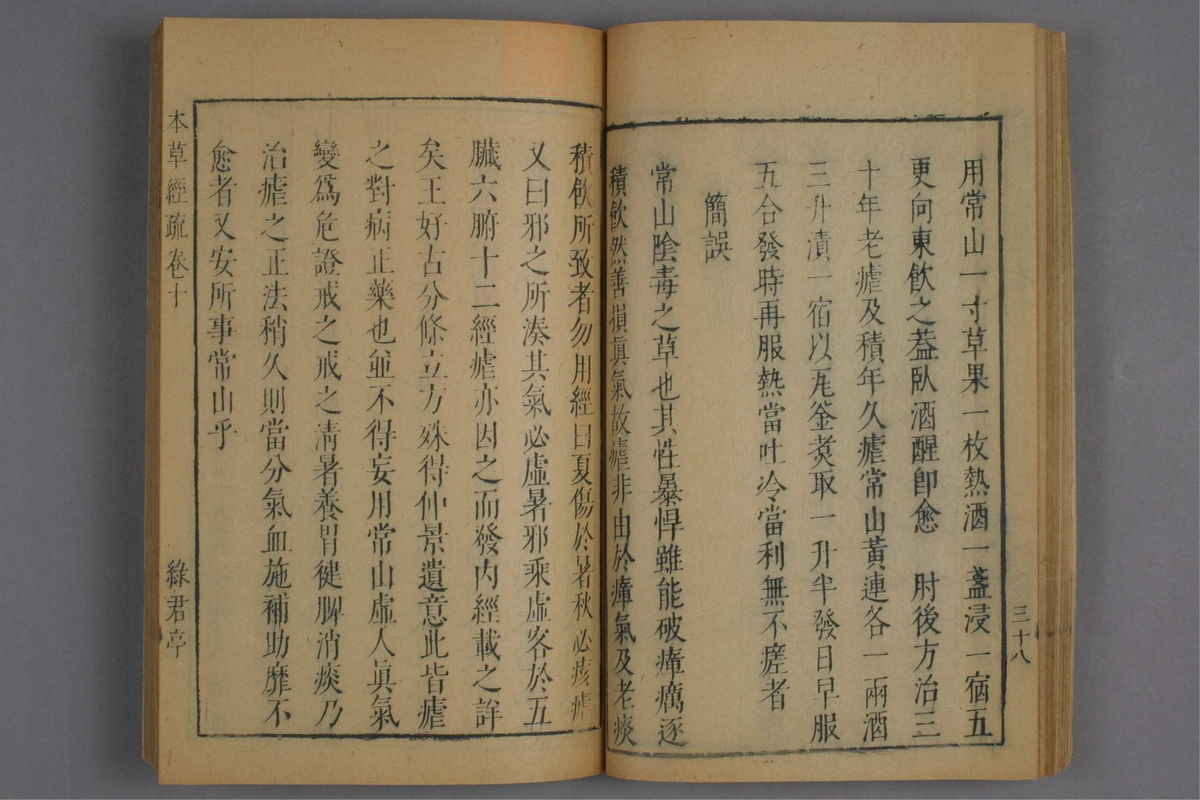 三十八
用常山一寸草果一枚熱酒一盞浸一宿五
更向東飲之葢臥酒醒卽愈　肘後方治三
十年老瘧及積年久瘧常山黃連各一兩酒
三升漬一宿以瓦釜煑取一升半發日早服
五合發時再服熱當吐冷當利無不瘥者
簡誤
常山陰毒之草也其性暴悍雖能破瘴癘逐
積飲然善損眞氣故瘧非由於瘴氣及老痰
積飲所致者勿用經曰夏傷於暑秋必痎瘧
又曰邪之所湊其氣必虛暑邪乘虛客於五
臟六腑十二經瘧亦因之而發內經載之詳
矣王好古分條立方殊得仲景遺意此皆瘧
之對病正藥也並不得妄用常山虛人眞氣
變爲危證戒之戒之淸暑養胃健脾消痰乃
治瘧之正法稍久則當分氣血施補助靡不
愈者又安所事常山乎
本草經疏卷十
綠君亭